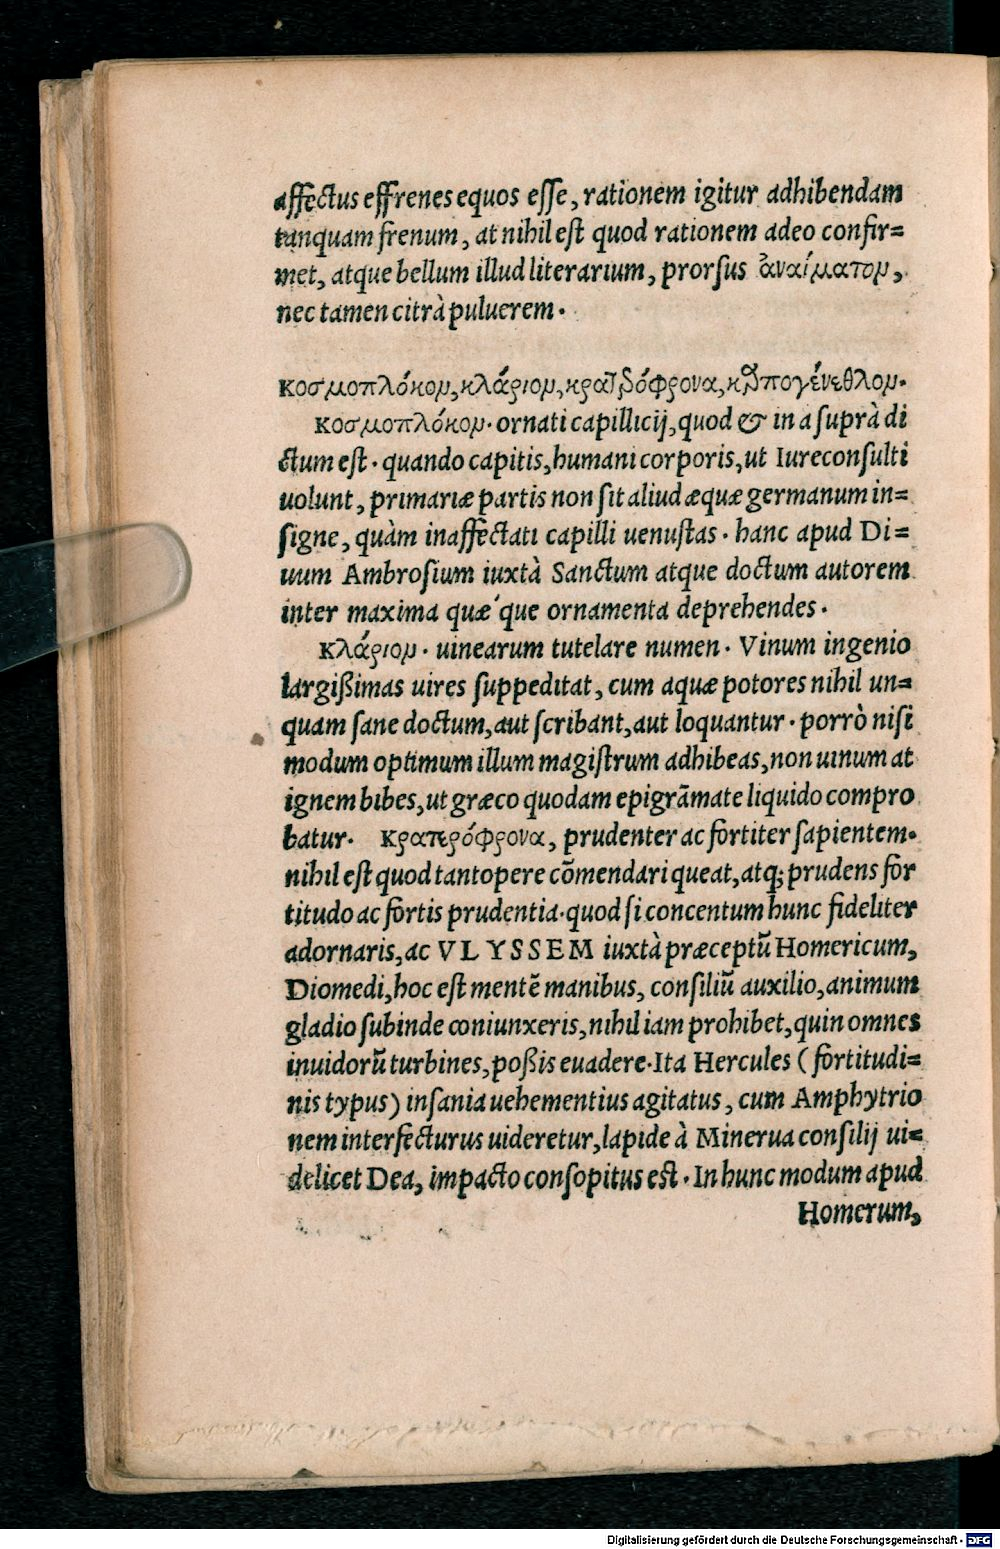 affectus effrenes equos esse, rationem igitur adhibendam
tanquam frenum, at nihil est quod rationem adeo confir=
met, atque bellum illud literarium, prorsus ἀναίματον,
nec tamen citrà puluerem.
κοσμοπλόκον, κλάριον, κρατερόφρονα, κυπρογένεθλον.
κοσμοπλόκον. ornati capillicij, quod & in a suprà di
ctum est. quando capitis, humani corporis, ut Iureconsulti
uolunt, primariæ partis non sit aliud æquæ germanum in=
signe, quàm inaffectati capilli uenustas. hanc apud Di=
uum Ambrosium iuxtà Sanctum atque doctum autorem
inter maxima quæ´que ornamenta deprehendes.
κλάριον. uinearum tutelare numen. Vinum ingenio
largißimas uires suppeditat, cum aquæ potores nihil un=
quam sane doctum, aut scribant, aut loquantur. porrò nisi
modum optimum illum magistrum adhibeas, non uinum at
ignem bibes, ut græco quodam epigrãmate liquido compro
batur. κρατερόφρονα, prudenter ac fortiter sapientem.
nihil est quod tantopere cõmendari queat, atq; prudens for
titudo ac fortis prudentia. quod si concentum hunc fideliter
adornaris, ac VLYSSEM iuxtà præceptũ Homericum,
Diomedi, hoc est mentẽ manibus, consiliũ auxilio, animum
gladio subinde coniunxeris, nihil iam prohibet, quin omnes
inuidorũ turbines, poßis euadere. Ita Hercules (fortitudi=
nis typus) insania uehementius agitatus, cum Amphytrio
nem interfecturus uideretur, lapide à Minerua consilij ui=
delicet Dea, impacto consopitus est. In hunc modum apud
Homerum,
Digitalisierung gefördert durch die Deutsche Forschungsgemeinschaft - DFG